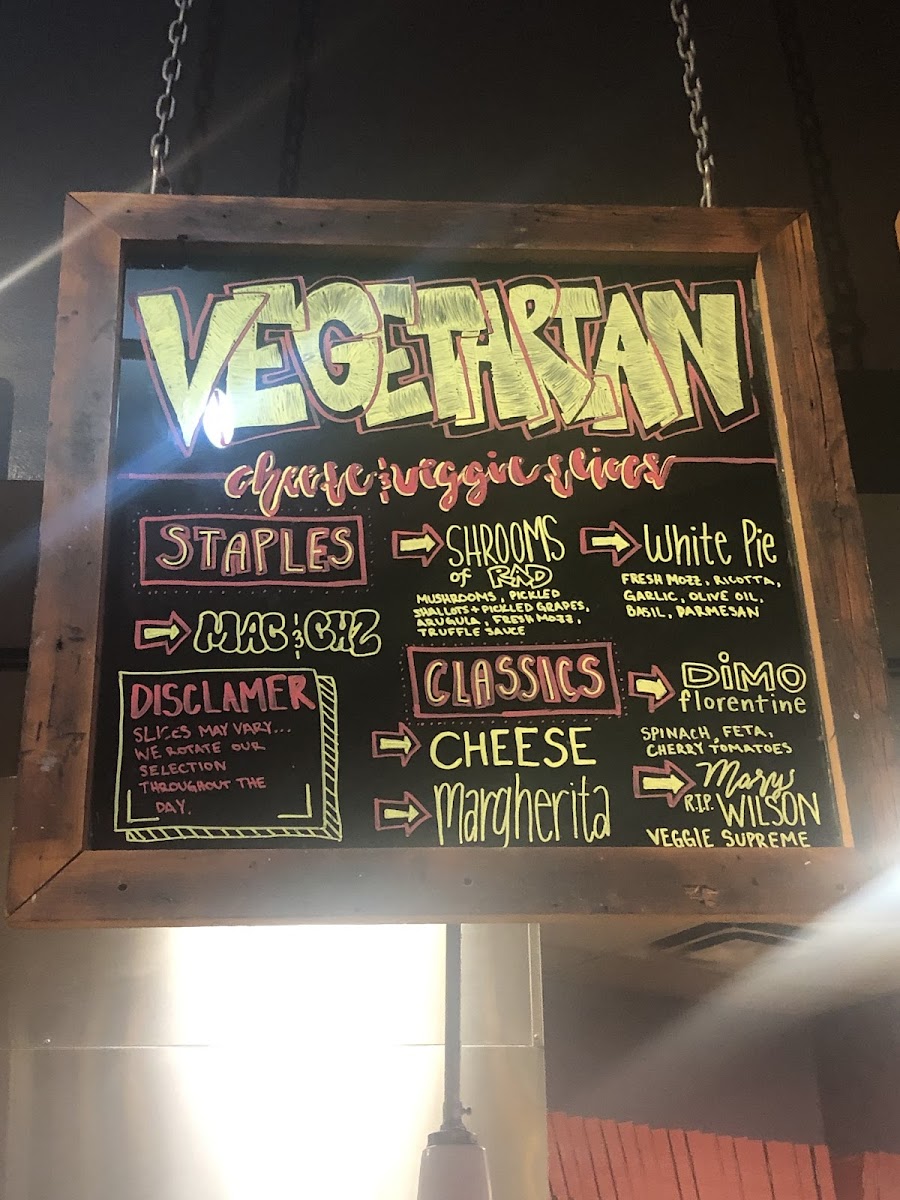 VEGETARIAN
cheese & veggie slices
STAPLES
MAC & CHZ
SHROOMS
of RAD
MUSHROOMS, PICKLED
SHALLOTS + PICKLED GRAPES,
ARUGULA, FRESH MOZZ,
TRUFFLE SAUCE
White Pie
FRESH MOZZ, RICOTTA,
GARLIC, OLIVE OIL,
BASIL, PARMESAN
DISCLAMER
SLICES MAY VARY...
WE ROTATE OUR
SELECTION
THROUGHOUT THE
DAY.
CLASSICS
CHEESE
Margherita
DiMO
florentine
SPINACH, FETA,
CHERRY TOMATOES
Marys
R.I.P. WILSON
VEGGIE SUPREME